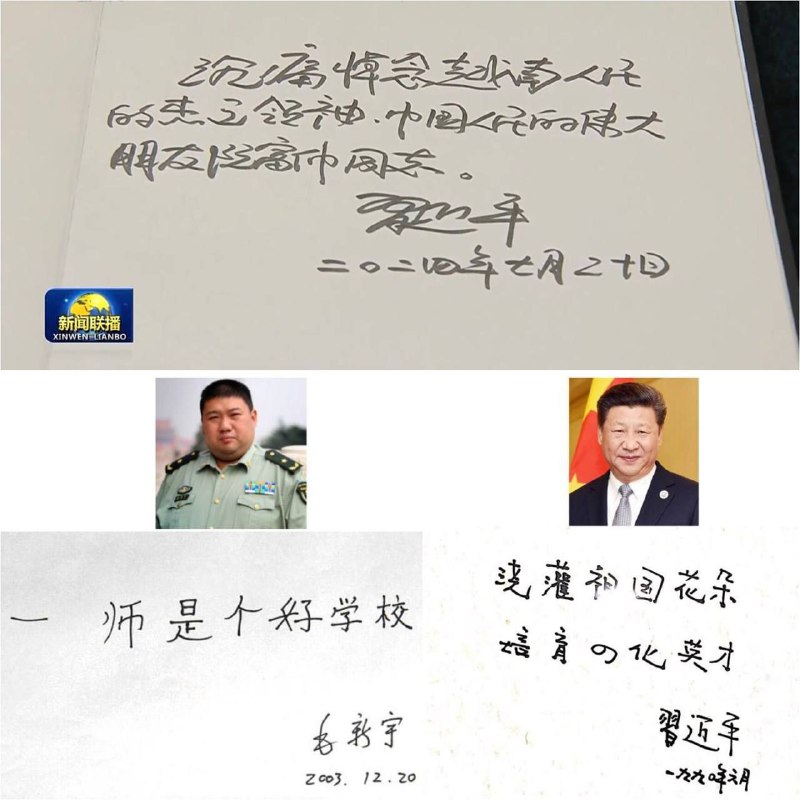 沉痛悼念越南人民
的杰立领袖、中国人民的伟大
朋友阮富仲同志。
習近平
二〇二四年七月二十日
新闻联播
XINWEN-LIANBO
一师是个好学校
毛新宇
2003.12.20
浇灌祖国花朵
培育四化英才
習近平
一九九〇年六月